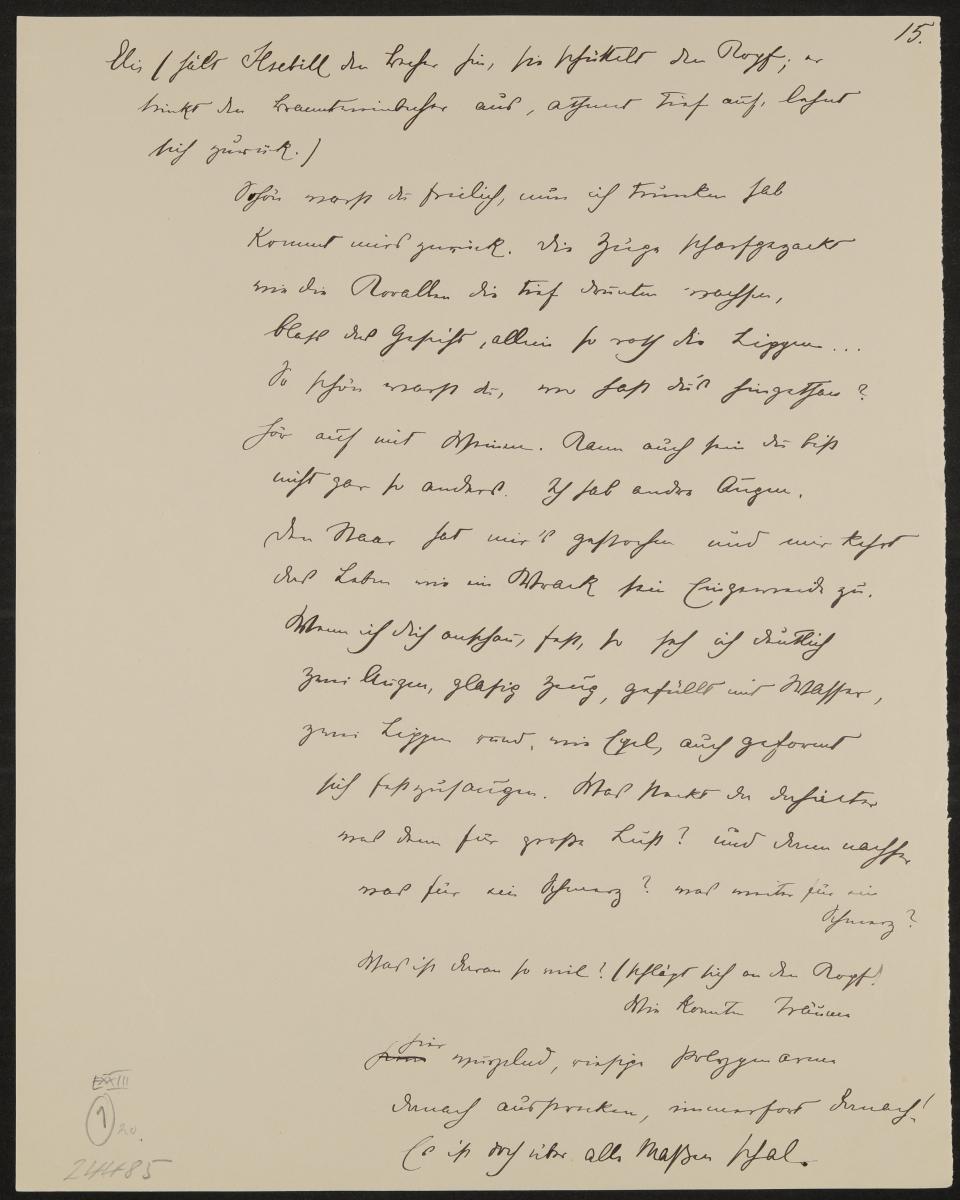 15.
Elis (hält Ilsebill den Becher hin, sie schüttelt den Kopf; er
trinkt den Branntweinbecher aus, athmet tief auf, lehnt
sich zurück.)
Schön warst du freilich, nun ich trunken hab
Kommt mirs zurück. Die Züge scharfgezackt
wie die Korallen die tief drunten wachsen,
blass das Gesicht, allein so roth die Lippen ...
So schön warst du, wo hast du's hingethan?
Hör auf mit Weinen. Kann auch sein du bist
nicht gar so anders. Ich hab andre Augen.
Den Staar hat mir's gestochen und mir kehrt
das Leben wie ein Wrack sein Eingeweide zu.
Wenn ich dich anschau, fest, so seh ich deutlich
zwei Augen, glasig Zeug, gefüllt mit Wasser,
zwei Lippen rund, wie Egel, auch geformt
sich festzusaugen. Was steckt da dahinter
was denn für große Lust? und dann nachher
was für ein Schmerz? was weiter für ein
Schmerz?
Was ist daran so viel? (schlägt sich an den Kopf)
Wie konnte träumen
hier wurzelnd, riesige Polypenarme
danach ausstrecken, immerfort danach!
Es ist doch über alle Maßen schal.
1
20.
24485